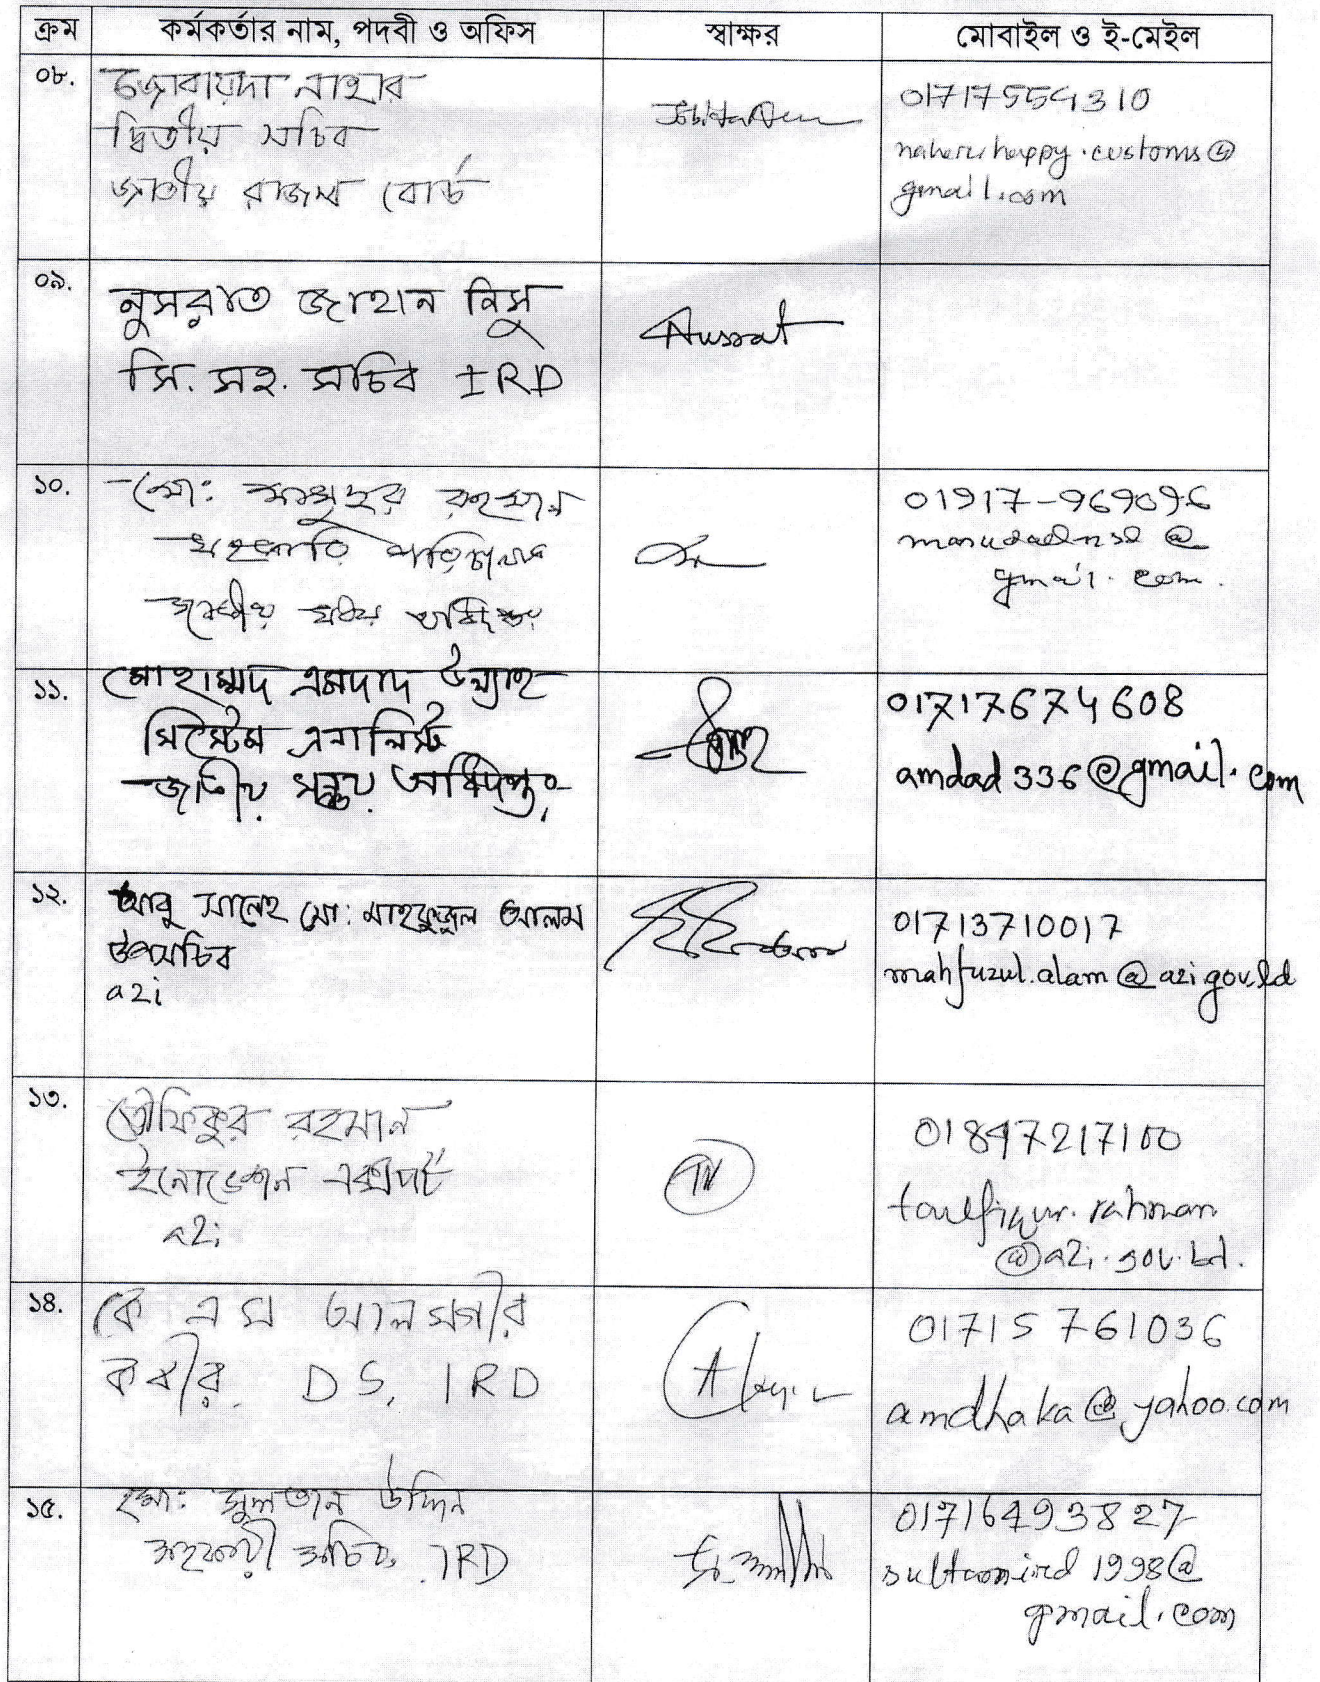 ক্রম কর্মকর্তার নাম, পদবী ও অফিস স্বাক্ষর মোবাইল ও ই-মেইল
০৮. জোবায়দা নাহার
দ্বিতীয় সচিব
জাতীয় রাজস্ব বোর্ড
01717554310
happy.customs@
gmail.com
০৯. নুসরাত জাহান নিসু
সি. সহ. সচিব IRD
Nusrat
১০. মো: রহমান
01917-969096
@
gmail.com.
১১. মোহাম্মদ এমদাদ উল্যাহ
সিস্টেম এনালিস্ট
জাতীয় সঞ্চয় অধিদপ্তর
01717674608
amdad336@gmail.com
১২. আবু সালেহ মো: মাহফুজুল আলম
উপসচিব
a2i
01713710017
mahfuzul.alam@a2i.gov.bd
১৩. তৌফিকুর রহমান
ইনোভেশন এক্সপার্ট
a2i
01847217100
toufiqur.rahman
@a2i.gov.bd.
১৪. কে এম আলমগীর
কবীর. DS, IRD
01715761036
amdhaka@yahoo.com
১৫. মো: সুলতান উদ্দিন
সহকারী সচিব, IRD
01716493827
1998@
gmail.com